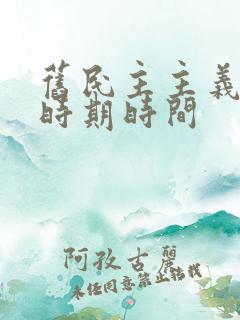 舊民主主義
時期時間
阿孜古麗
未经同意禁止转载